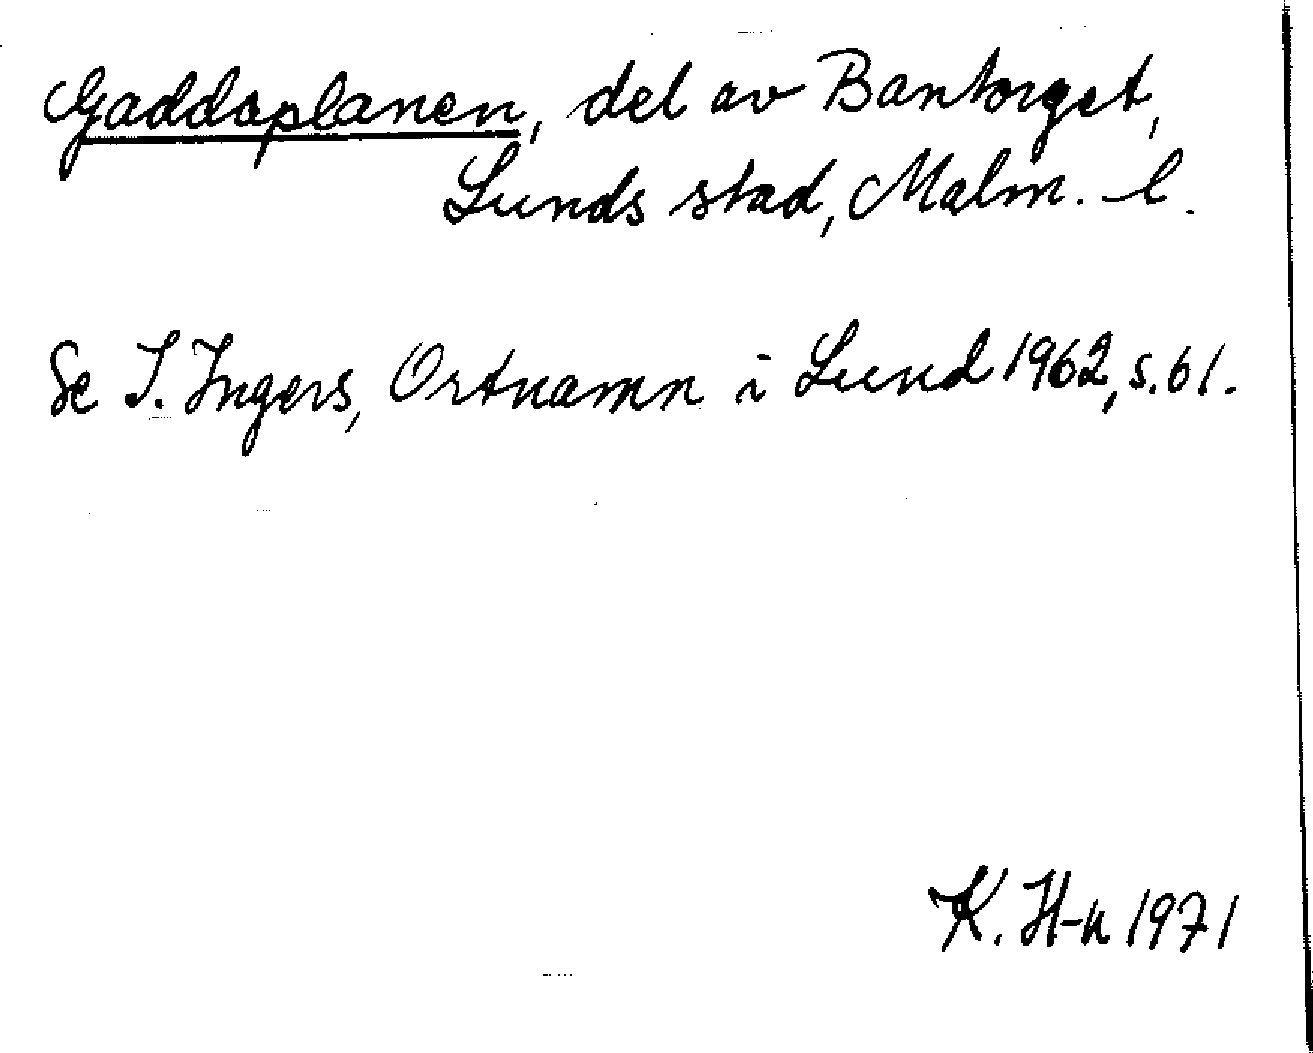 Gaddaplanen, del av Bantorget,
Lunds stad, Malm. l.
Se I. Ingers, Ortnamn i Lund 1962, s. 61.
K. H-n 1971